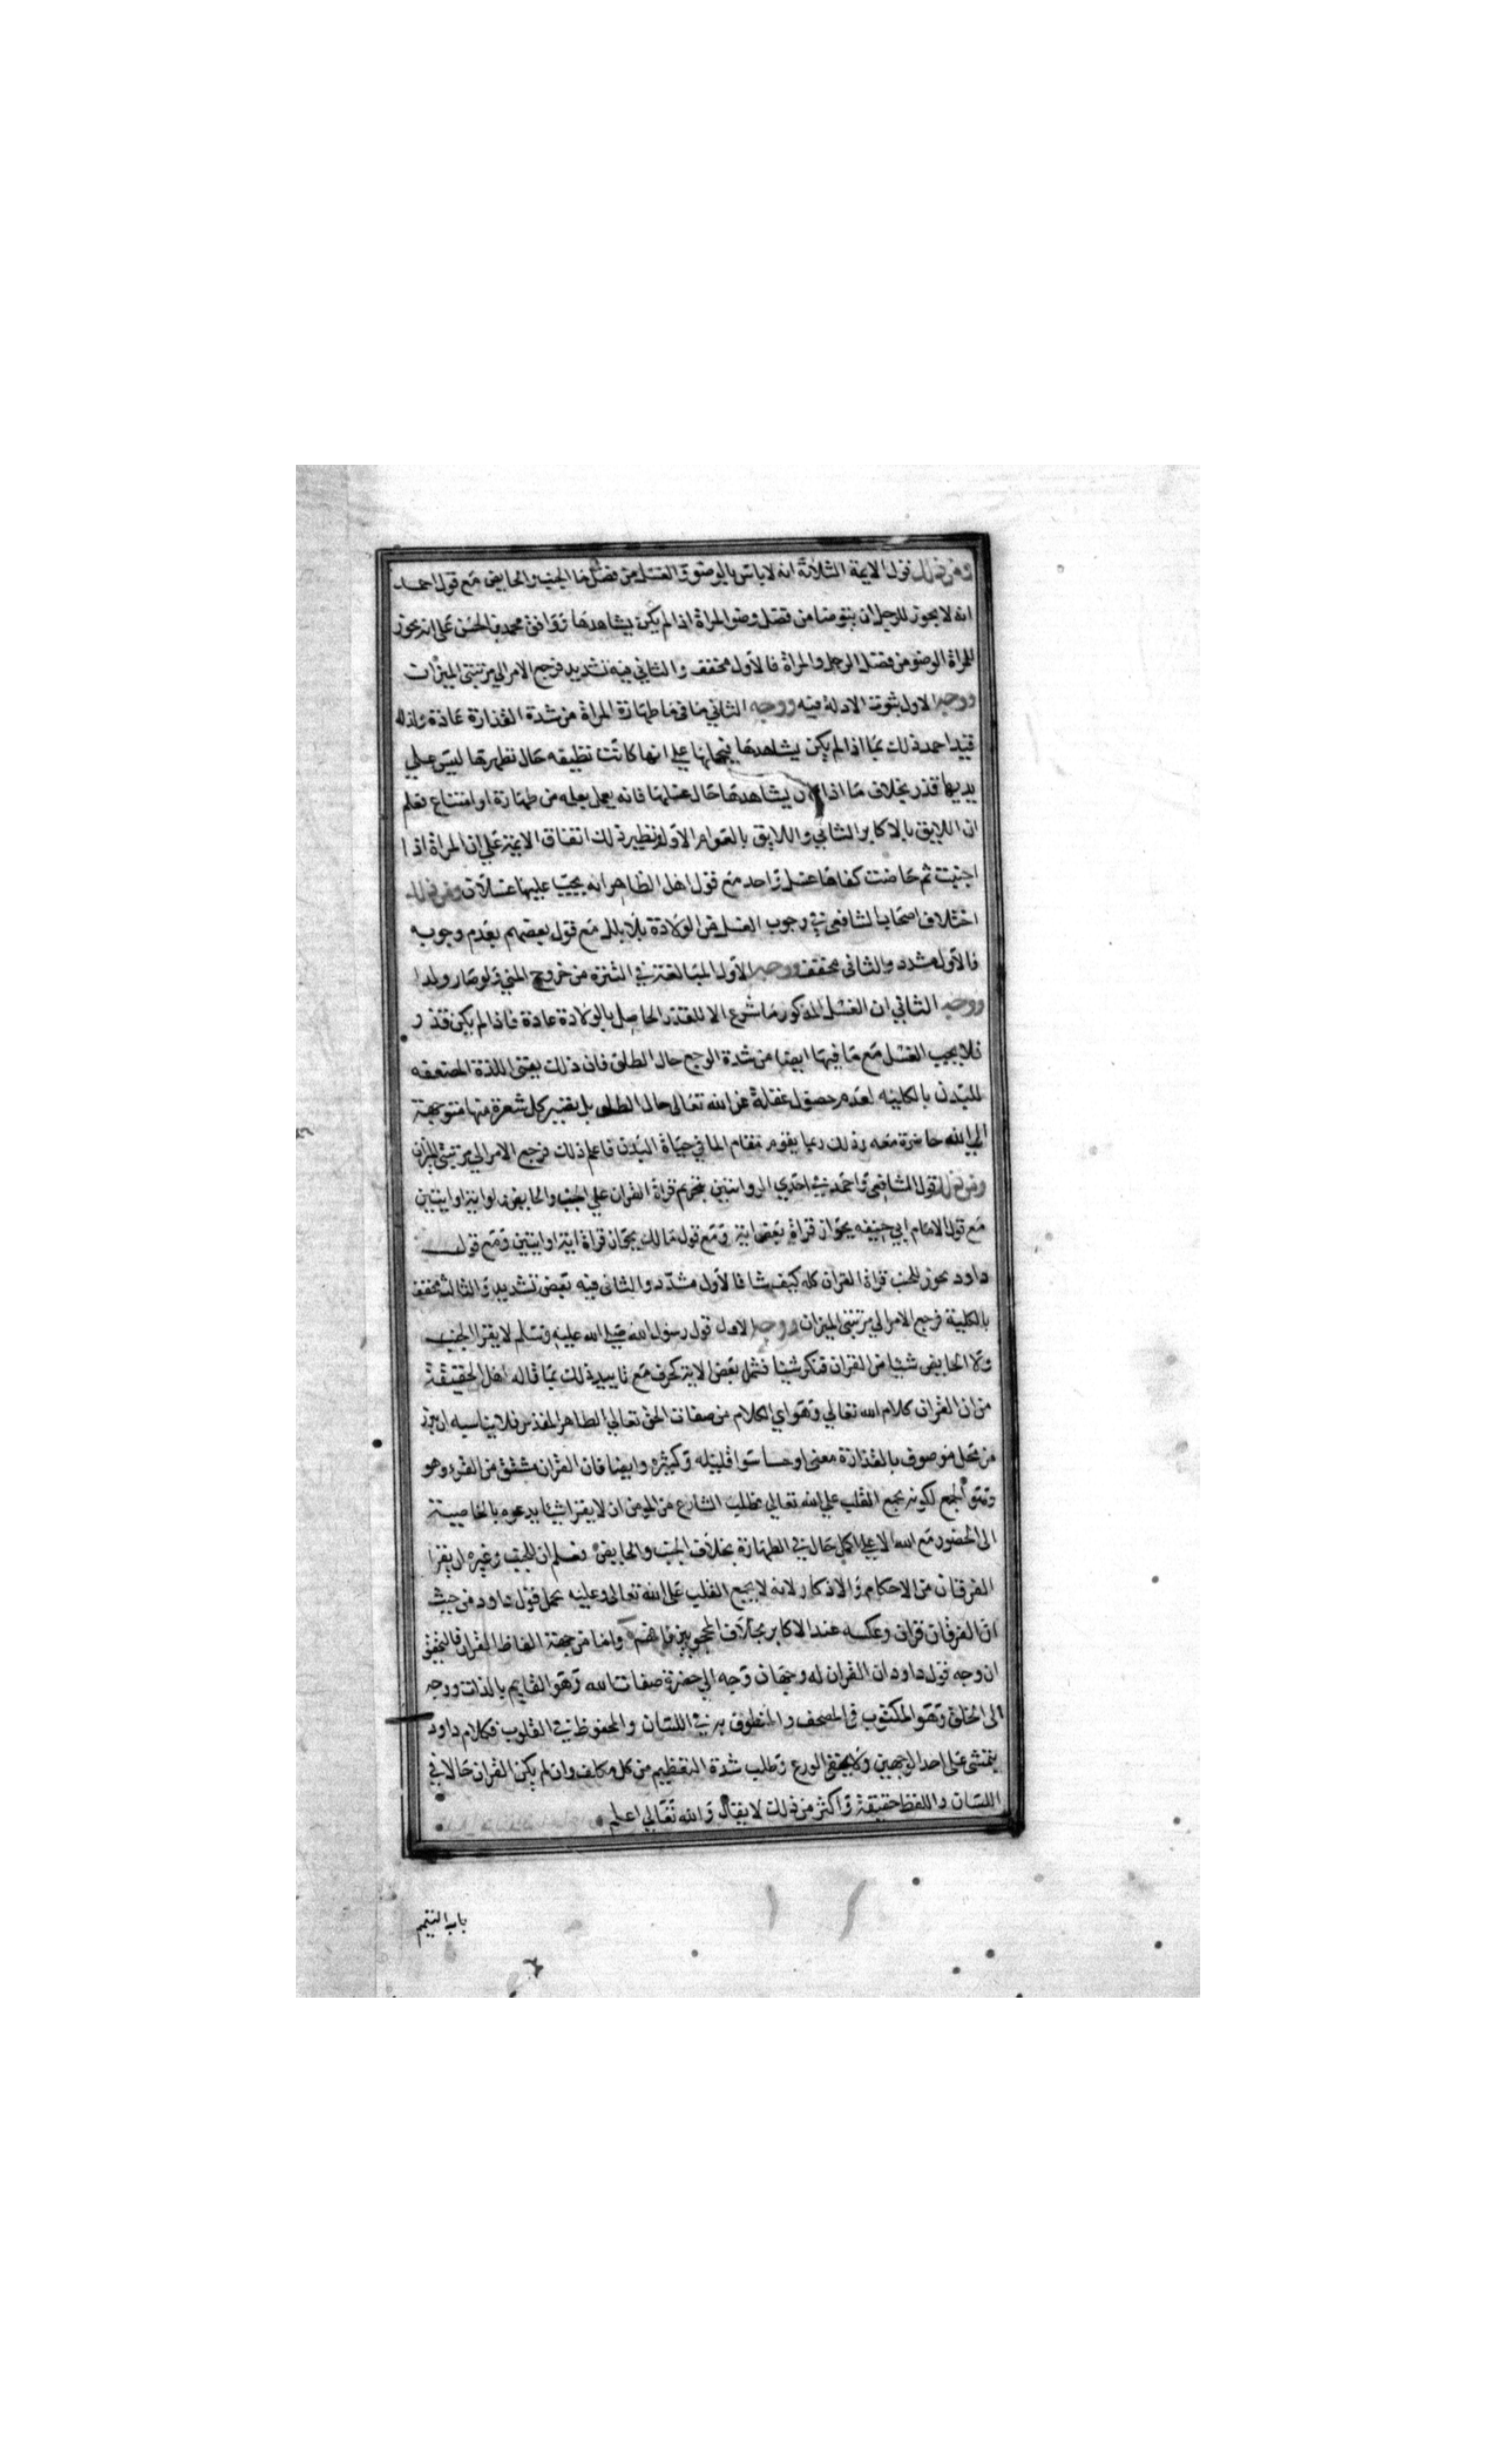 ومن ذلك قول الايمة الثلاثة انه لاباس بالوضو والغسل من فضل ما الجنب والحايض مع قول احمد
انه لا يجوز للرجل ان يتوضا من فضل وضو المراة اذا لم يكن يشاهدها ووافق محمد بن الحسن على انه يجوز
للمراة الوضو من فضل الرجل والمراة فالاول مخفف والثاني فيه تشديد فرجع الامر الي مرتبتي الميزان
ووجه الاول ثبوت الادلة فيه ووجه الثاني ما في ما طهارة المراة من شدة القذارة عادة ولذلك
قيد احمد ذلك بما اذا لم يكن يشاهدها فيحملها علي انها كانت نظيفه حال تطهرها ليس علي
يديها قذر بخلاف ما اذا كان يشاهدها حال غسلها فانه يعمل بعلمه من طهارة او امتناع فعلم
ان اللايق بالاكابر الثاني واللايق بالعوام الاول ونظير ذلك اتفاق الايمة على ان المراة اذا
اجنبت ثم حاضت كفاها غسل واحد مع قول اهل الظاهر انه يجب عليها غسلان ومن ذلك
اختلاف اصحاب الشافعي في وجوب الغسل من الولادة بلا بلل مع قول بعضهم بعدم وجوبه
فالاول مشدد والثاني مخفف ووجه الاول المبالغة في التنزه من خروج المني ولو صار ولدا
ووجه الثاني ان الغسل المذكور ما شرع الا للقذر الحاصل بالولادة عادة فاذا لم يكن قذر
فلا يجب الغسل مع ما فيها ايضا من شدة الوجع حال الطلق فان ذلك يفني اللذة المضعفه
للبدن بالكلية لعدم حصول غفلة عن الله تعالى حال الطلق بل يصير كل شعرة منها متوجهة
الي الله حاضرة معه وذلك ربما يقوم مقام الما في حياة البدن فاعلم ذلك فرجع الامر الي مرتبتي الميزان
ومن ذلك قول الشافعي واحمد في احدي الروايتين بتحريم قراة القران علي الجنب والحايض ولو اية او ايتين
مع قول الامام ابي حنيفه بجواز قراة بعض اية ومع قول مالك بجواز قراة اية او ايتين ومع قول
داود يجوز للجنب قراة القران كله كيف شا فالاول مشدد والثاني فيه بعض تشديد والثالث مخفف
بالكلية فرجع الامر الي مرتبتي الميزان ووجه الاول قول رسول الله صلي الله عليه وسلم لا يقرا الجنب
ولا الحايض شيئا من القران فنكر شيئا فشمل بعض الاية كحرف مع تاييد ذلك بما قاله اهل الحقيقة
من ان القران كلام الله تعالي وهو اي الكلام من صفات الحق تعالي الطاهر المقدس فلا يناسبه ان يبرز
من محل موصوف بالقذارة معني او حسا سوا قليله وكثيره وايضا فان القران مشتق من القرء وهو
وهو الجمع لكونه يجمع القلب علي الله تعالي فطلب الشارع من المومن ان لا يقرا شيئا يدعوه بالخاصية
الى الحضور مع الله الا علي اكمل حال في الطهارة بخلاف الجنب والحايض فعلم ان للجنب وغيره ان يقرا
الفرقان من الاحكام والاذكار لانه لا يجمع القلب على الله تعالى وعليه يحمل قول داود من حيث
ان الفرقان قران وعكسه عند الاكابر بخلاف المحجوبين فافهم واما من جهة الفاظ القران فالتحقيق
ان وجه قول داود ان القران له وجهان وجه الي حضرة صفات الله وهو القايم بالذات ووجه
الى الخلق وهو المكتوب في المصحف والمنطوق به في اللسان والمحفوظ في القلوب فكلام داود
يتمشى على احد الوجهين ولا يخفى الورع وطلب شدة التعظيم من كل مكلف وان لم يكن القران حالا في
اللسان واللفظ حقيقة واكثر من ذلك لا يقال والله تعالي اعلم
باب التيمم